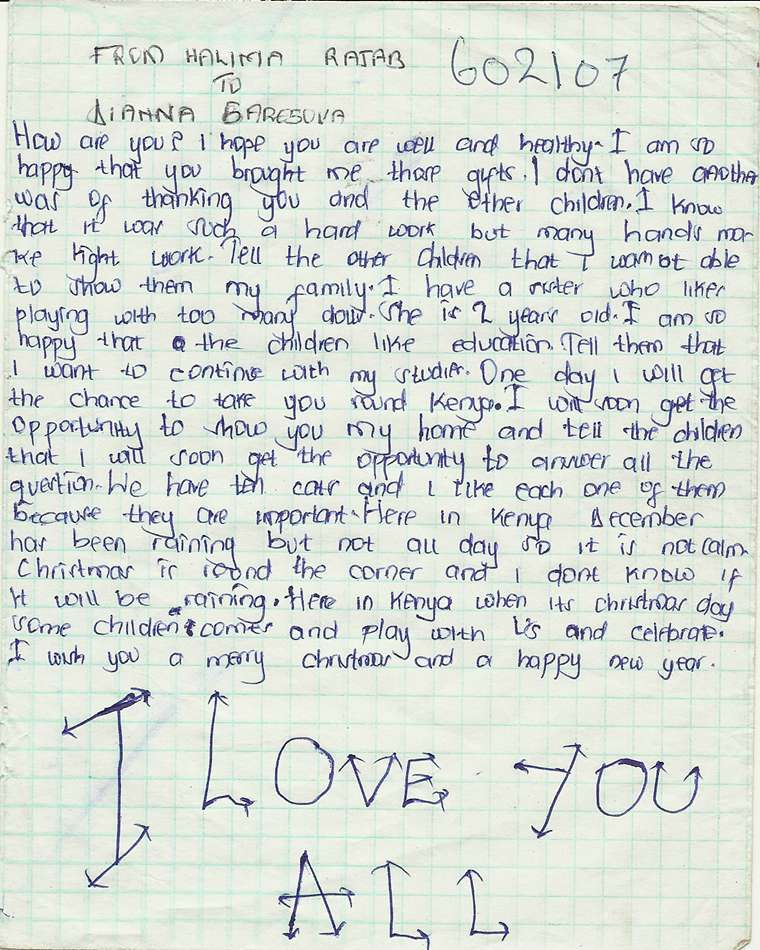 FROM HALIMA RAJAB 602107
TO
DIANNA BARESOVA
How are you? I hope you are well and healthy. I am so
happy that you brought me those gifts. I dont have another
was of thanking you and the other children. I know
that it was such a hard work but many hands ma-
ke light work. Tell the other children that I wam ot able
to show them my family. I have a sister who likes
playing with too many dows. She is 2 years old. I am so
happy that the children like education. Tell them that
I want to continue with my studies. One day I will get
the chance to take you round Kenya. I will soon get the
opportunity to show you my home and tell the children
that I will soon get the opportunity to answer all the
question. We have ten cats and I like each one of them
because they are important. Here in Kenya December
has been raining but not all day so it is not calm.
Christmas is round the corner and I dont know if
it will be raining. Here in Kenya when its christmas day
some children comes and play with us and celebrate.
I wish you a merry christmas and a happy new year.
I LOVE YOU
ALL